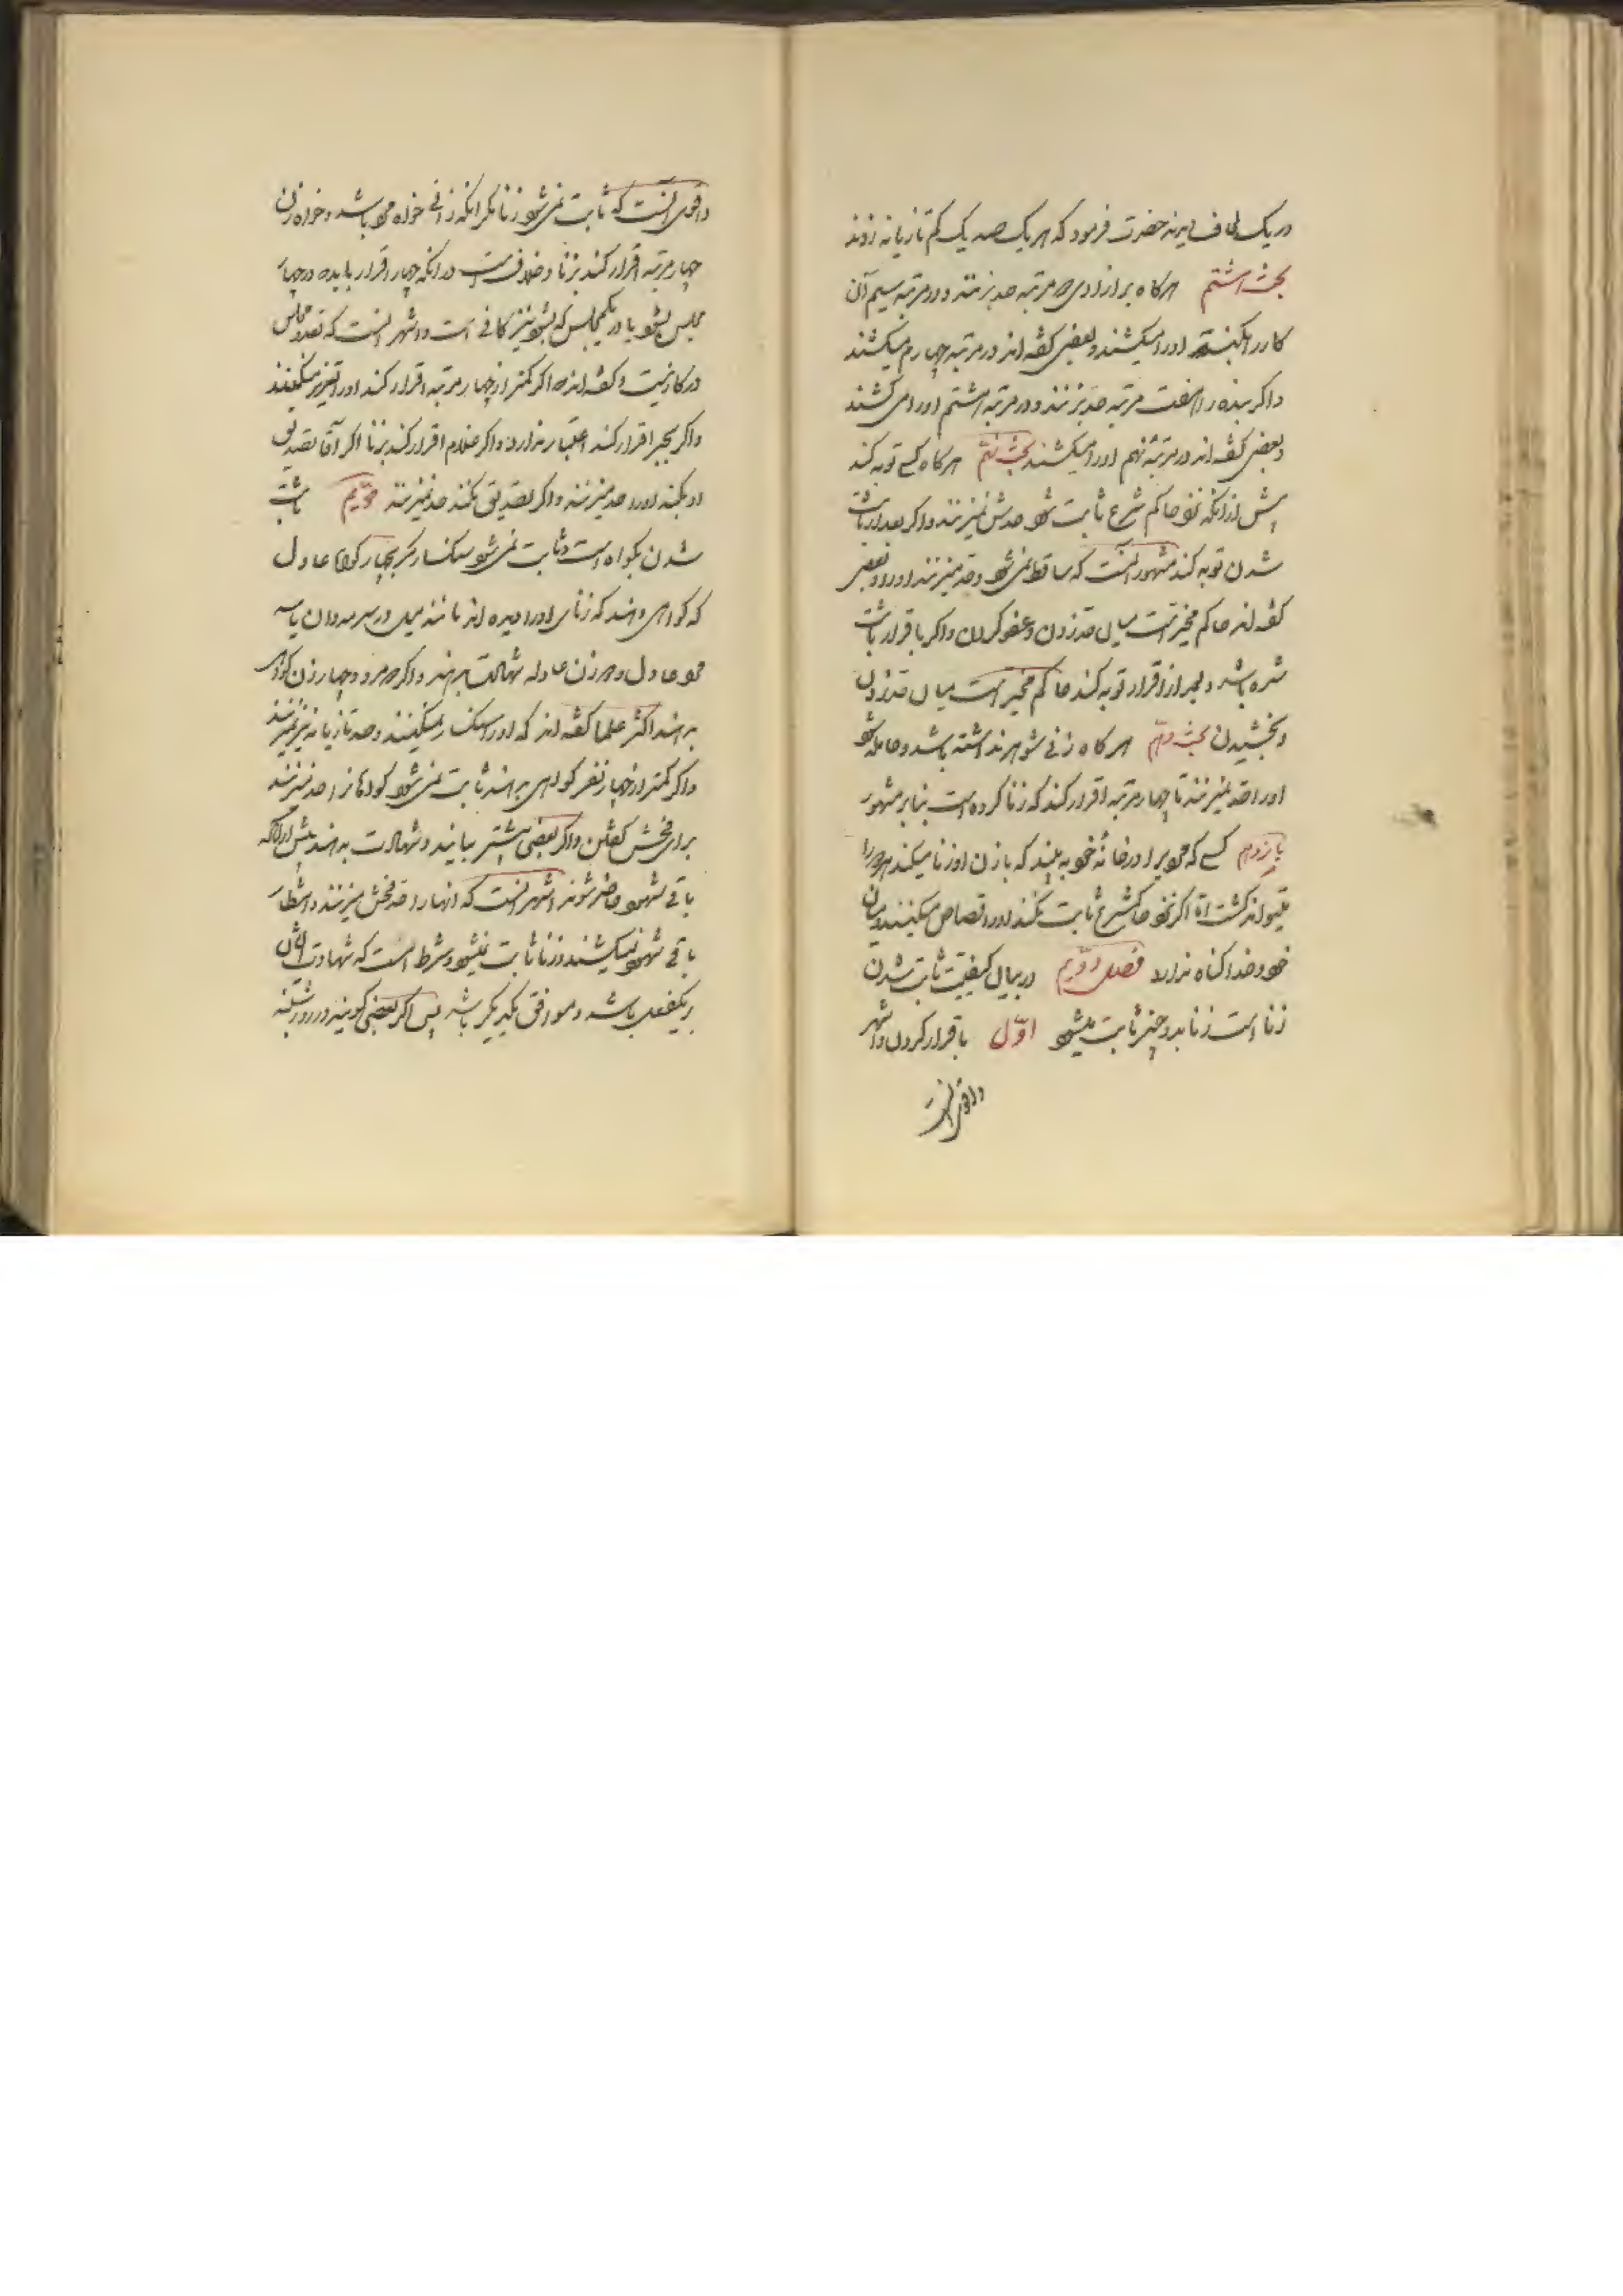 در یک لحاف دیدند حضرت فرمود که هر یک صد یک کم تازیانه زدند
بحث هشتم هرگاه بر آزادی دو مرتبه حد بزنند و در مرتبه سیم آن
کار را بکند او را میکشند و بعضی گفته اند در مرتبه چهارم میکشند
و اگر بنده را هفت مرتبه حد بزنند و در مرتبه هشتم او را می کشند
و بعضی گفته اند در مرتبه نهم او را میکشند بحث نهم هرگاه کسی توبه کند
پیش از آنکه نزد حاکم شرع ثابت شود حدش نمیزنند و اگر بعد از ثابت
شدن توبه کند مشهور آنست که ساقط نمی شود و حد میزنند او را و بعضی
گفته اند حاکم مخیر است میان حد زدن و عفو کردن و اگر باقرار ثابت
شده باشد و بعد از اقرار توبه کند حاکم مخیر است میان حد زدن
و بخشیدن بحث دهم هرگاه زنی شوهر نداشته باشد و حامله شود
او را حد نمیزنند تا چهار مرتبه اقرار کند که زنا کرده است بنا بر مشهور
یازدهم کسی که مردی را در خانه خود به بیند که با زن او زنا میکند هر دو را
میتواند کشت اما اگر نزد حاکم شرع ثابت نکند او را قصاص میکنند و میان
خود و خدا گناه ندارد فصل دویم در بیان کیفیت ثابت شدن
زنا است زنا بدو چیز ثابت میشود اول باقرار کردن و اشهر
و اقوی آنست
و اقوی آنست که ثابت نمی شود زنا مگر آنکه زانی خواه مرد باشد و خواه زن
چهار مرتبه اقرار کند بزنا و خلافست در آنکه چهار اقرار باید در چهار
مجلس بشود یا در یکمجلس که بشود نیز کافی است و اشهر آنست که تعدد مجلس
در کار نیست و گفته اند اگر کمتر از چهار مرتبه اقرار کند او را تعزیر میکنند
و اگر بجبر اقرار کند اعتبار ندارد و اگر غلام اقرار کند بزنا اگر آقا تصدیق
او بکند او را حد میزنند و اگر تصدیق نکند حد نمیزنند دویم ثابت
شدن بگواه است و ثابت نمی شود سنگسار مگر بچهار گواه عادل
که گواهی دهند که زنای او را دیده اند مانند میل در سرمه دان یا سه
مرد عادل و دو زن عادله شهادت بدهند و اگر دو مرد و چهار زن گواهی
بدهند اکثر علما گفته اند که او را سنگسار نمیکنند و حد تازیانه نیز نمیزنند
و اگر کمتر از چهار نفر گواهی بدهند ثابت نمی شود گواهان را حد میزنند
برای فحش گفتن و اگر بعضی پیشتر بیایند و شهادت بدهند پیش از آنکه
باقی شهود حاضر شوند اشهر آنست که آنها را حد فحش میزنند و انتظار
باقی شهود نمیکشند و زنا ثابت نمیشود و شرط است که شهادت ایشان
بر یکفعل باشد و موافق یکدیگر باشد پس اگر بعضی گویند در روز شنبه